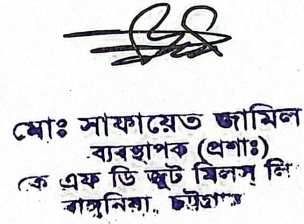 মোঃ সাফায়েত জামিল
ব্যবস্থাপক (প্রশাঃ)
কে এফ ডি জুট মিলস্ লি
রাঙ্গুনিয়া, চট্টগ্রাম